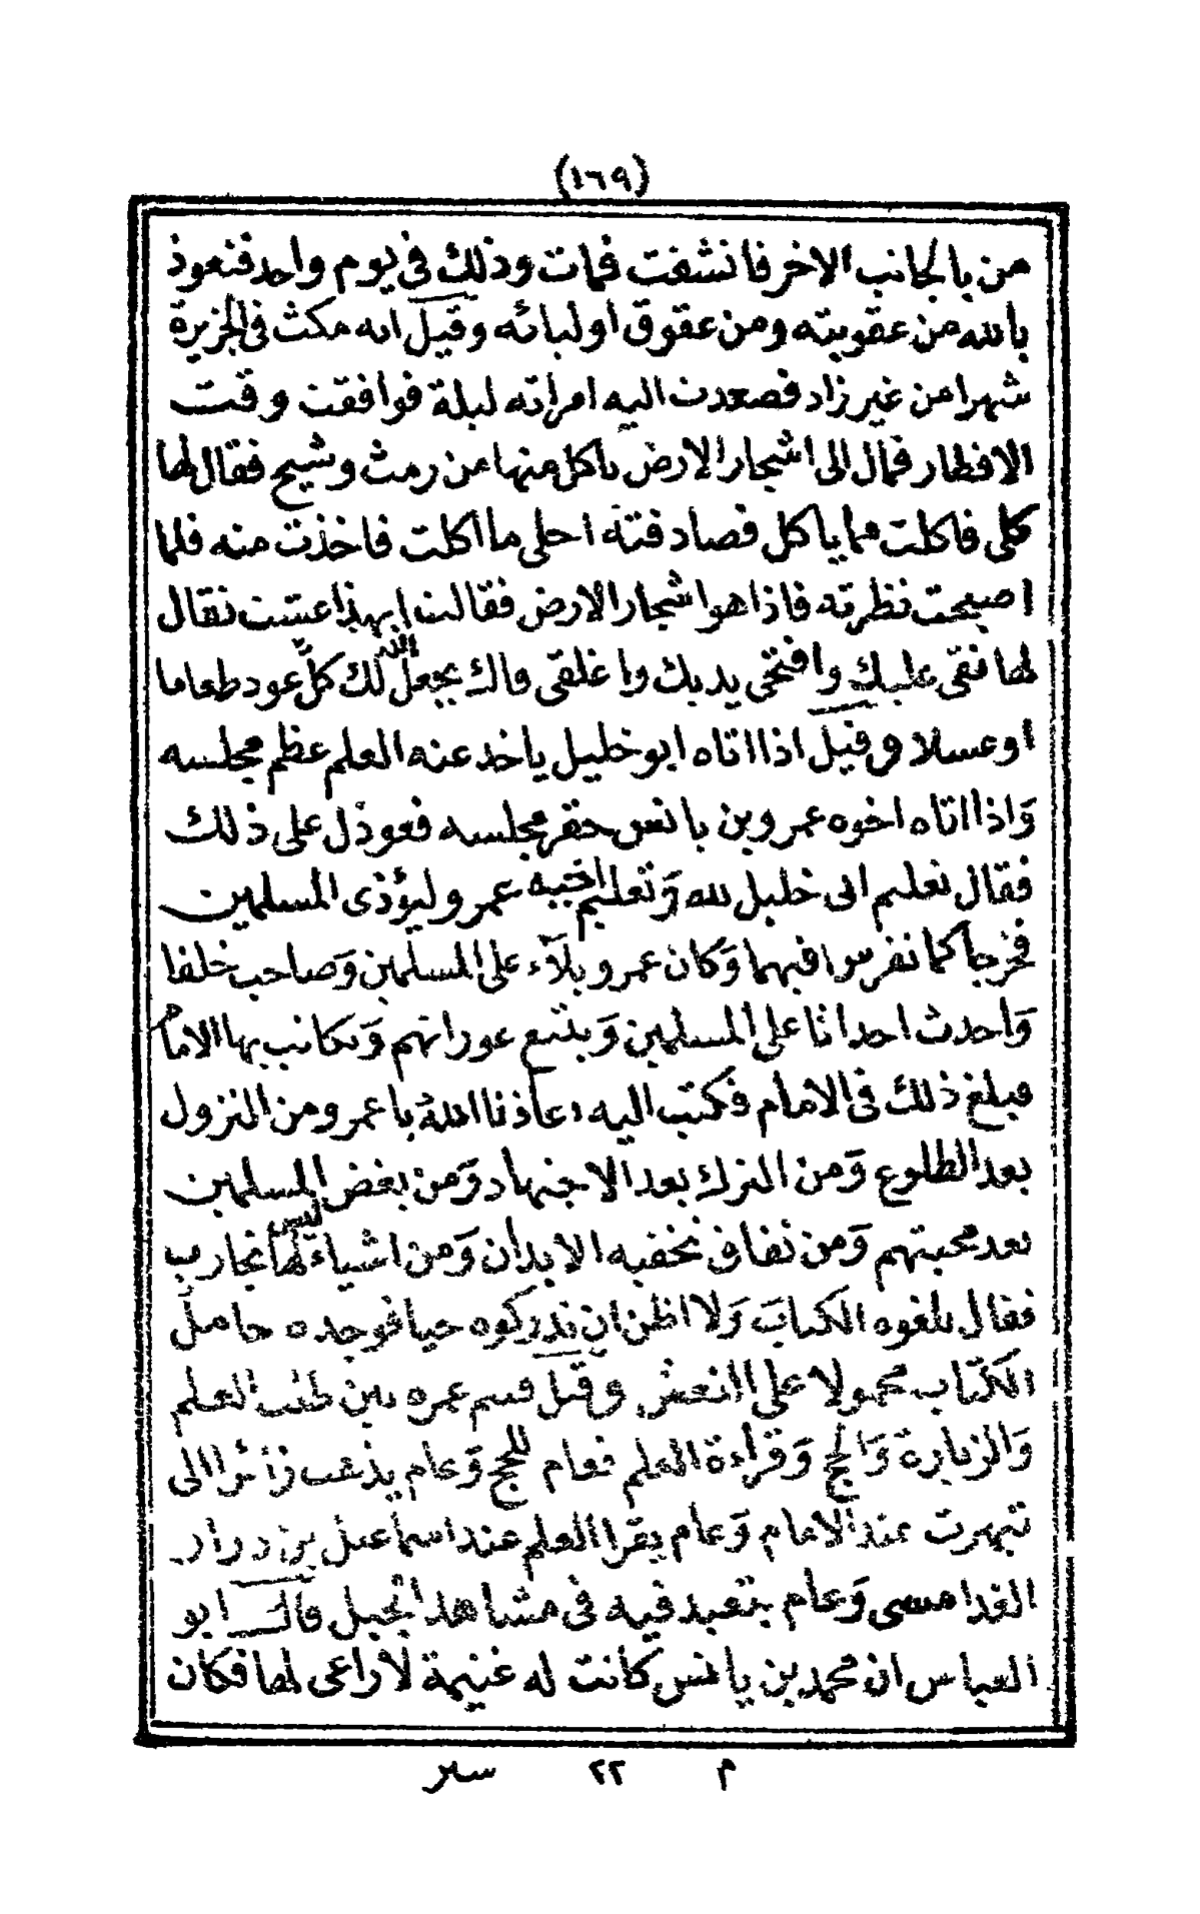 (١٦٩)
من بالجانب الاخر فانشفت فمات وذلك في يوم واحد فنعوذ
بالله من عقوبته ومن عقوق اوليائه وقيل انه مكث في الجزيرة
شهرا من غير زاد فصعدت اليه امراته ليلة فوافقت وقت
الافطار فمال الى اشجار الارض ياكل منها من رمث وشيح فقال لها
كلى فاكلت مما ياكل فصادفته احلى ما اكلت فاخذت منه فلما
اصبحت نظرته فاذا هو اشجار الارض فقالت ابهذا عشت فقال
لها نفقى عليك وافتحى يديك واغلقى فاك يجعل الله لك كل عود طعاما
او عسلا وقيل اذا اتاه ابو خليل ياخذ عنه العلم عظم مجلسه
وَاذا اتاه اخوه عمرو بن يانس حقر مجلسه فعوذل على ذلك
فقال تعليم ابى خليل لله وَتعليم اخيه عمرو ليؤذى المسلمين
فخرجا كما تفرس فيهما وَكان عمرو بلآء على المسلمين وَصاحب خلفا
وَاحدث احداثا على المسلمين وَيتتبع عوراتهم وَيكاتب بها الامام
فبلغ ذلك في الامام فكتب اليه اعاذنا الله يا عمرو من النزول
بعد الطلوع وَمن الترك بعد الاجتهاد وَمن بغض المسلمين
بعد محبتهم وَمن نفاق تخفيه الابدان وَمن اشياء ليس لها تجارب
فقال بلغوه الكتاب وَلا اظن ان تدركوه حيا فوجده حامل
الكتاب محمولا على النعش وقيل قسم عمره بين طلب العلم
وَالزيارة وَالحج وَقراءة العلم فعام للحج وَعام يذهب زائرا الى
تيهرت عند الامام وَعام يقرا العلم عند اسماعيل بن درار
الغدامسى وَعام يتعبد فيه في مشاهد الجبل قال ابو
العباس ان محمد بن يانس كانت له غنيمة لا راعى لها فكان
م ٢٢ سير